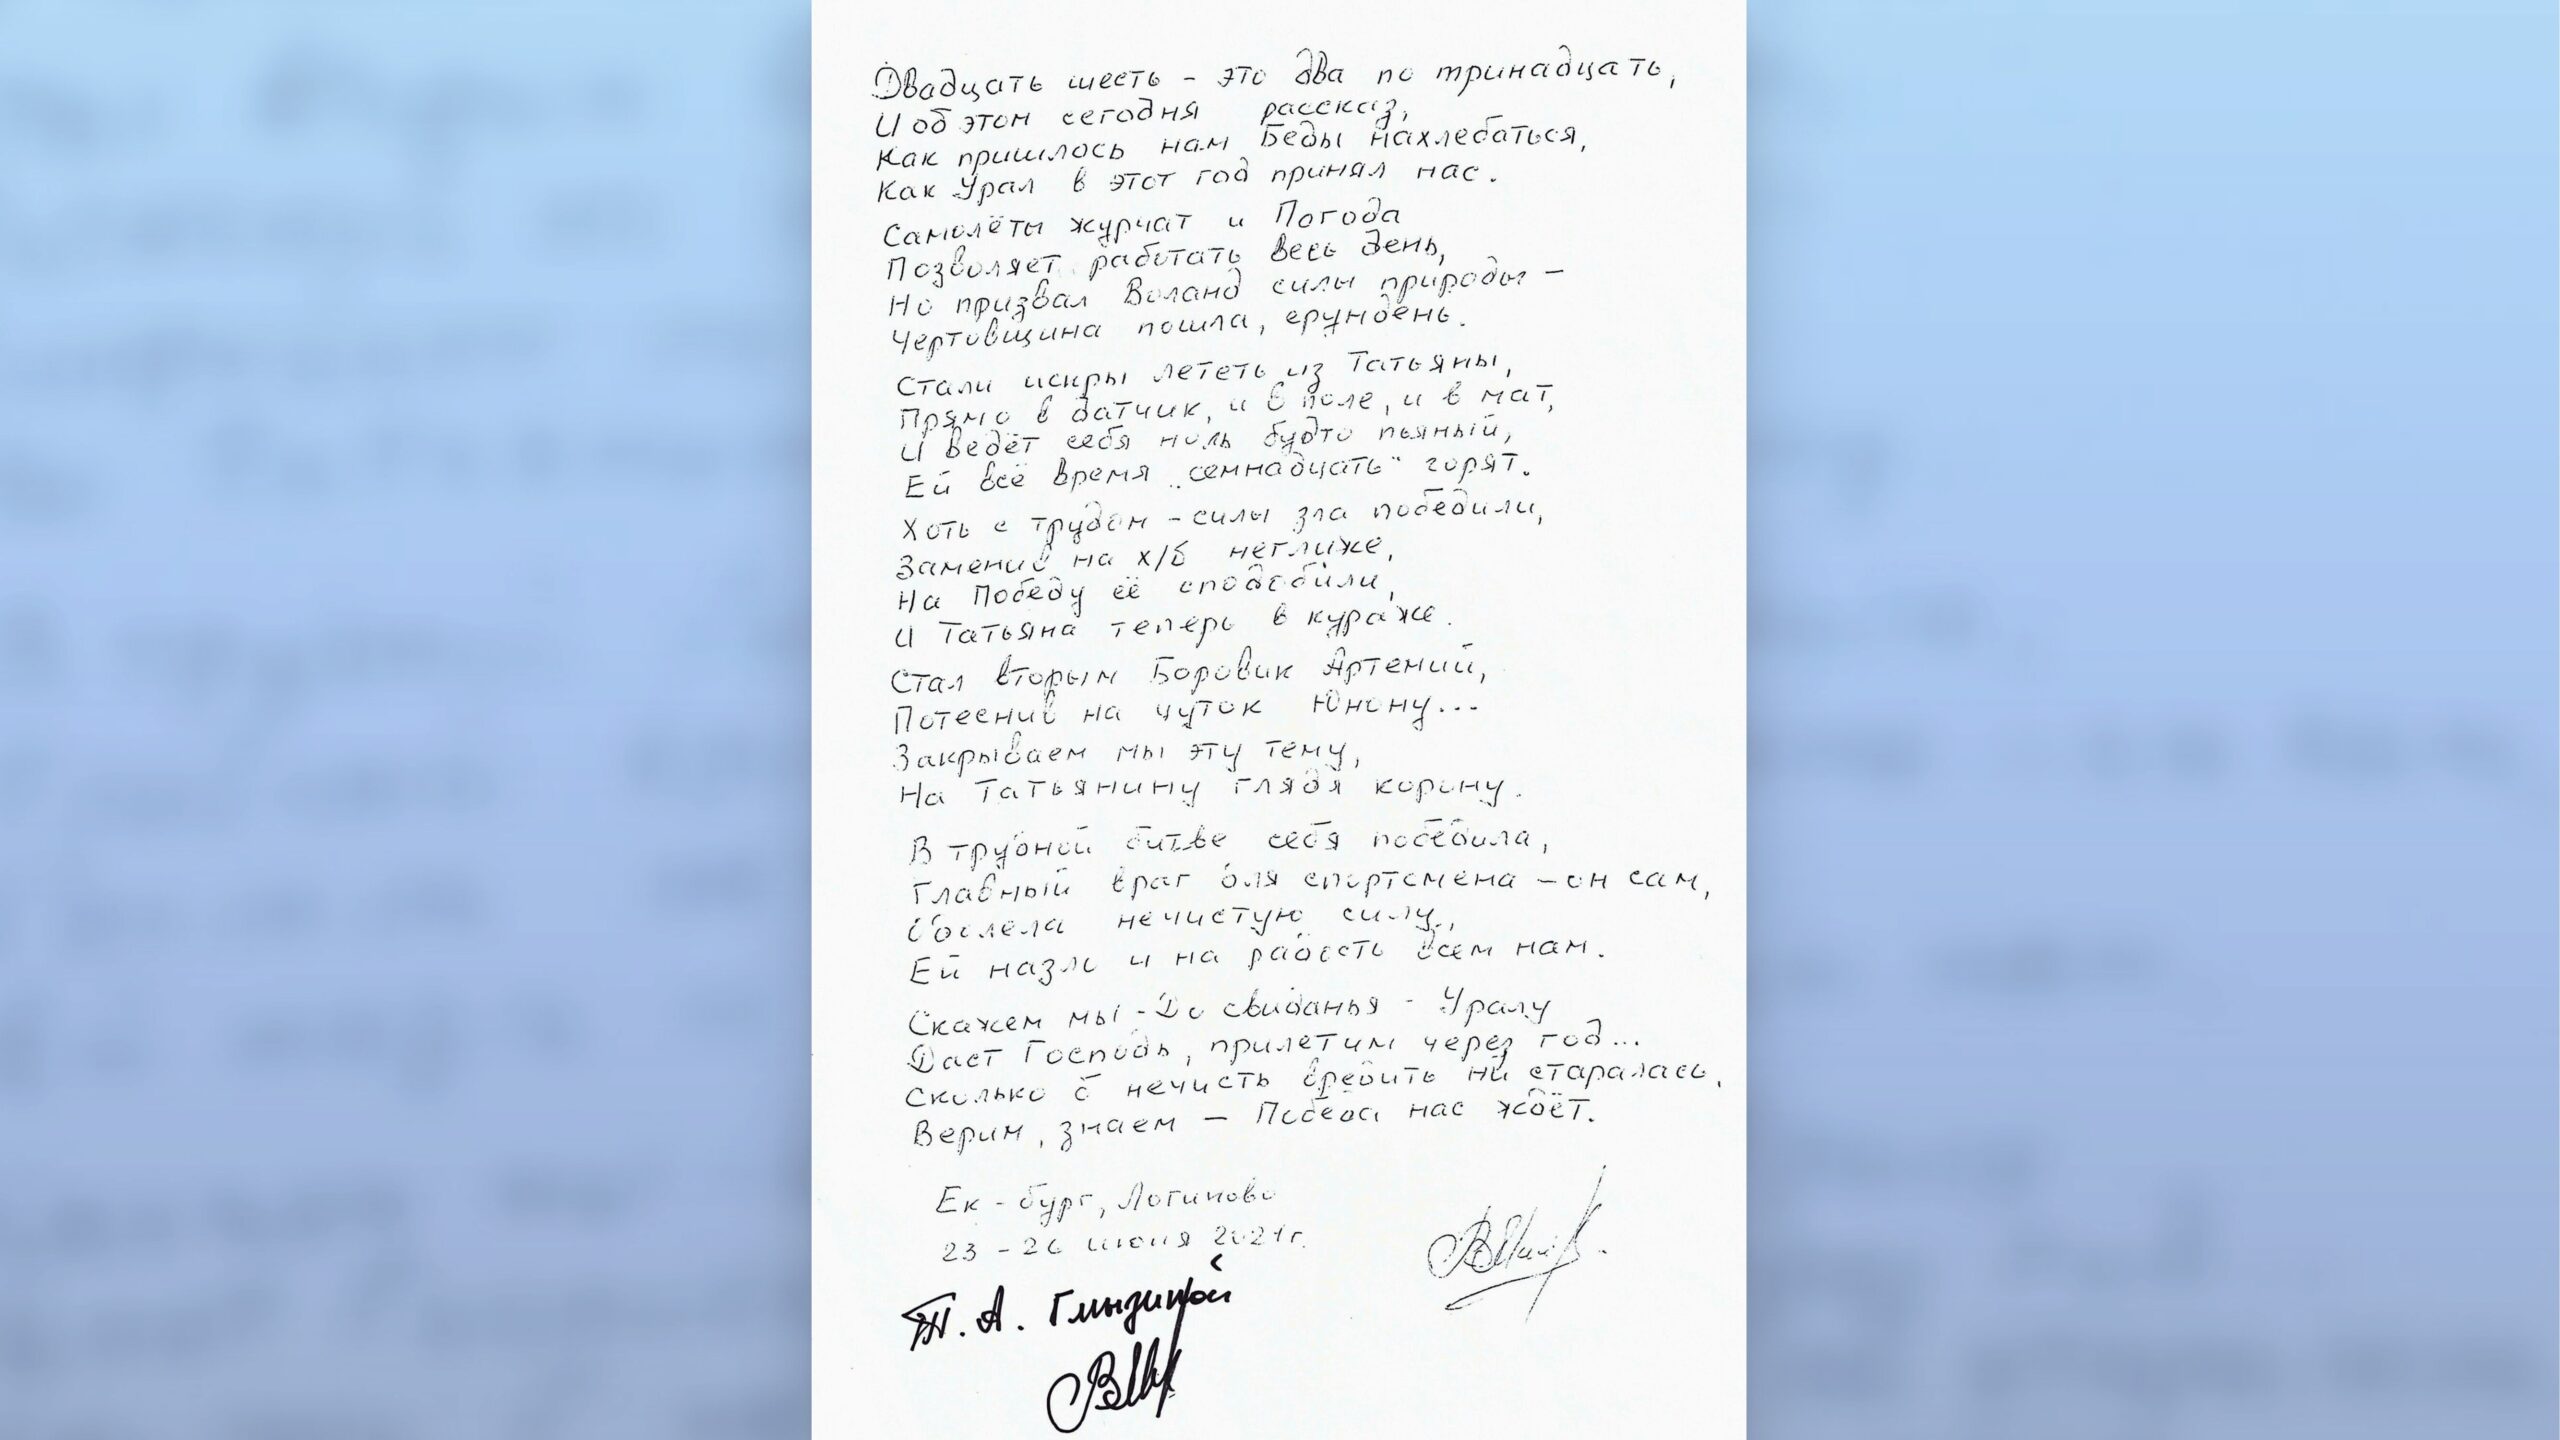 Двадцать шесть - это два по тринадцать,
И об этом сегодня рассказ,
Как пришлось нам Беды нахлебаться,
Как Урал в этот год принял нас.
Самолёты журчат и Погода
Позволяет работать весь день,
Но призвал Воланд силы природы -
Чертовщина пошла, ерундень.
Стали искры лететь из Татьяны,
Прямо в датчик, и в поле, и в мат,
И ведёт себя ноль будто пьяный,
Ей всё время „семнадцать" горят.
Хоть с трудом - силы зла победили,
Заменив на х/б неглиже,
На Победу её сподобили,
И Татьяна теперь в кураже.
Стал вторым Боровик Артемий,
Потеснив на чуток Юнону...
Закрываем мы эту тему,
На Татьянину глядя корону.
В трудной битве себя победила,
Главный враг для спортсмена - он сам,
нечистую силу,
Ей назло и на радость всем нам.
Скажем мы - До свиданья - Уралу
Даст Господь, прилетим через год...
Сколько б нечисть вредить ни старалась,
Верим, знаем - Победа нас ждёт.
Ек-бург, Логиново
23 - 26 июня 2021г.
Т. А.